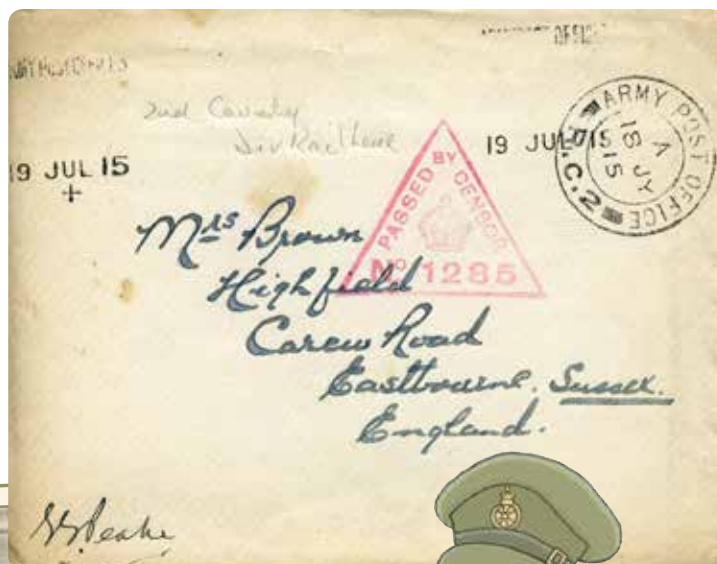 OFFICE
2nd Cavalry
Div Railhead
19 JUL 15
19 JUL 15
ARMY POST OFFICE
A
18 JY
15
R.C.2
PASSED BY CENSOR
No 1285
Mrs Brown
Highfield
Carew Road
Eastbourne. Sussex.
England.